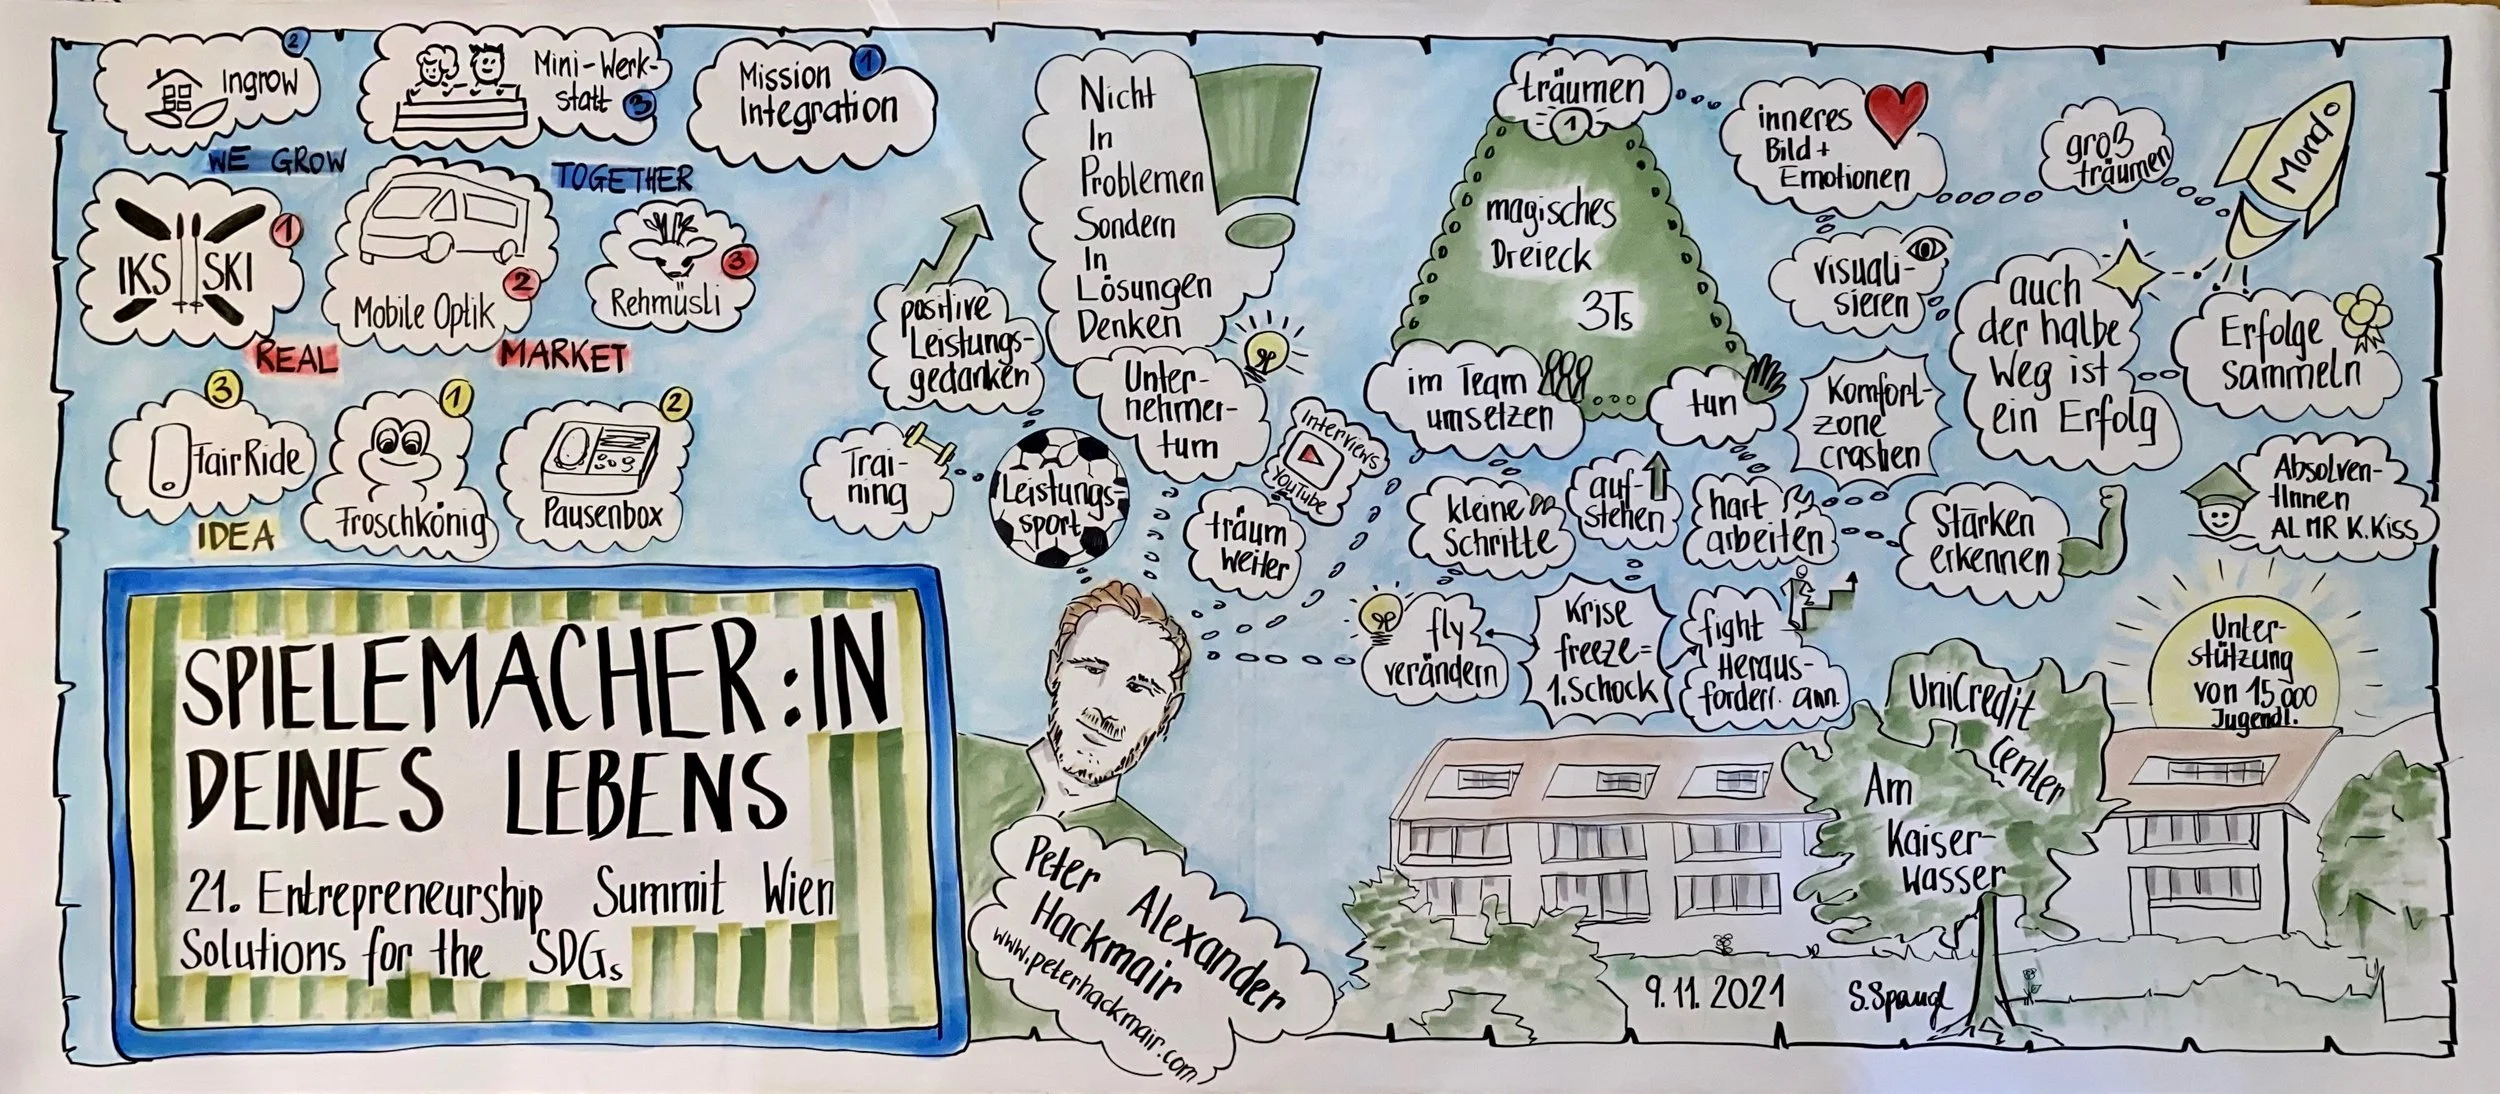 Ingrow
2
Mini-Werk-
statt 3
Mission 1
Integration
WE GROW
TOGETHER
IKS SKI
1
Mobile Optik
2
Rehmüsli
3
REAL
MARKET
3
FairRide
1
Froschkönig
2
Pausenbox
IDEA
SPIELEMACHER:IN
DEINES LEBENS
21. Entrepreneurship Summit Wien
Solutions for the SDGs
Nicht
In
Problemen
Sondern
In
Lösungen
Denken
positive
Leistungs-
gedanken
Unter-
nehmer-
tum
Trai-
ning
Leistungs-
sport
träum
weiter
Interviews
YouTube
Peter Alexander
Hackmair
www.peterhackmair.com
träumen
1
magisches
Dreieck
3Ts
im Team
umsetzen
tun
inneres
Bild +
Emotionen
groß
träumen
Mond
visuali-
sieren
auch
der halbe
Weg ist
ein Erfolg
Erfolge
sammeln
Komfort-
zone
crashen
kleine
Schritte
auf-
stehen
hart
arbeiten
Stärken
erkennen
Absolven-
tInnen
AL MR K.Kiss
fly
verändern
Krise
freeze =
1. Schock
fight
Heraus-
forder. ann.
Unter-
stützung
von 15.000
Jugendl.
UniCredit
Center
Am
Kaiser-
wasser
9.11.2021
S.Spangl